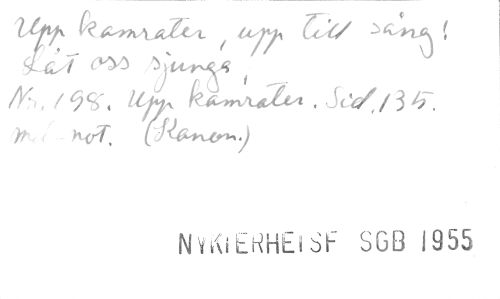 Upp kamrater, upp till sång!
Låt oss sjunga,
Nr. 198. Upp kamrater. Sid. 135.
med not. (Kanon.)
NYKTERHETSF SGB 1955